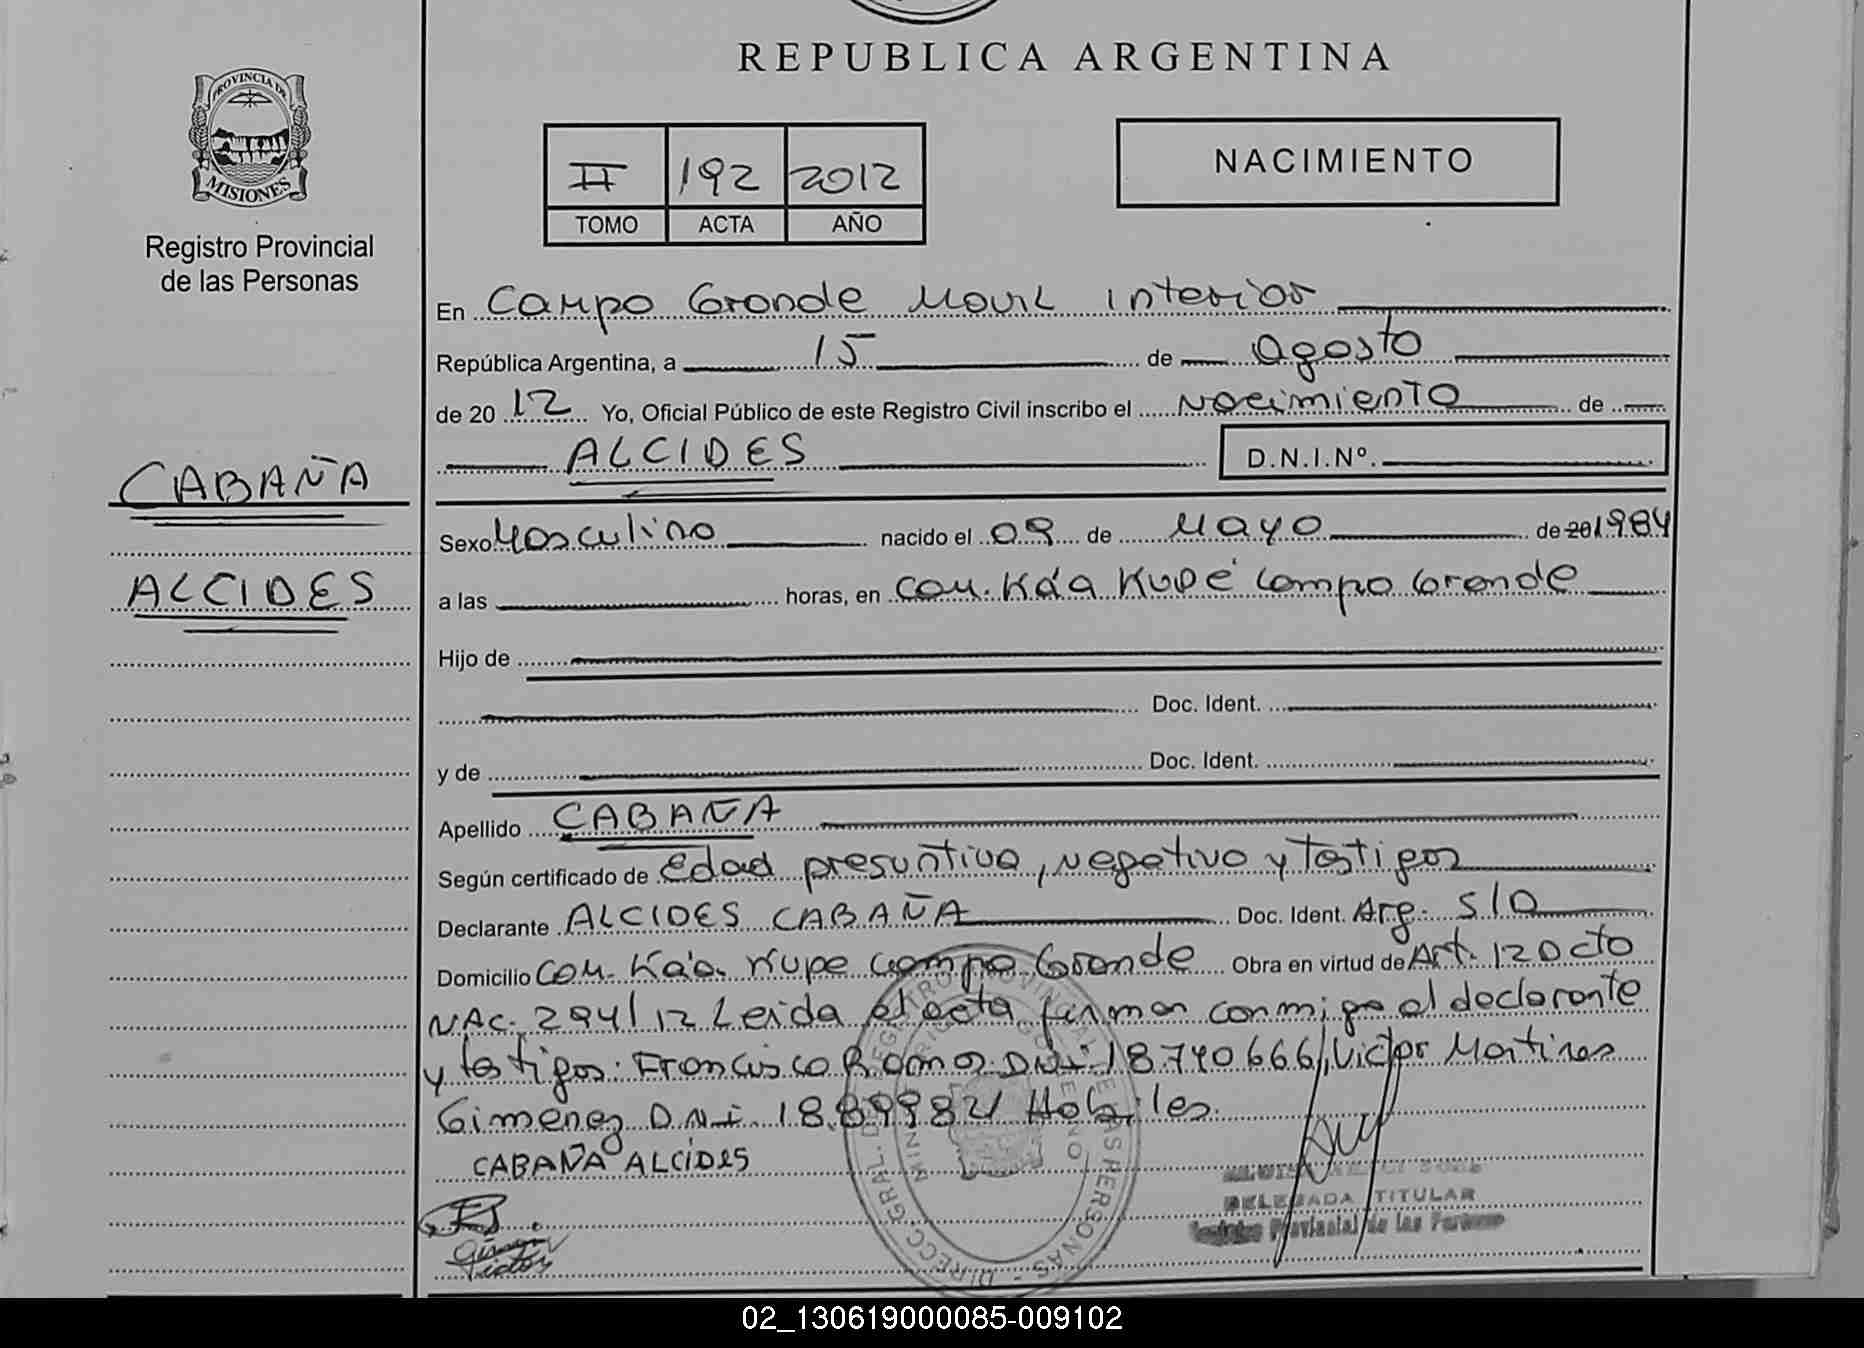 REPUBLICA ARGENTINA
PROVINCIA DE
MISIONES
Registro Provincial
de las Personas
II 192 2012
TOMO ACTA AÑO
NACIMIENTO
En Campo Grande Movil Interior
República Argentina, a 15 de agosto
de 2012 Yo, Oficial Público de este Registro Civil inscribo el Nacimiento de
ALCIDES D.N.I.Nº.
CABAÑA
ALCIDES
Sexo Masculino nacido el 09 de Mayo de 20 1984
a las horas, en Com. Ka'a Kupe Campo Grande
Hijo de
Doc. Ident.
y de Doc. Ident.
Apellido CABAÑA
Según certificado de Edad presuntiva, Negativo y Testigos
Declarante ALCIDES CABAÑA Doc. Ident. Arg. S/D
Domicilio Com. Ka'a Kupe Campo Grande Obra en virtud de Art. 12 Dcto
NAC. 294/12 Leida el acta firman conmigo el declarante
y testigos. Francisco Ramos DNI 18740666, Victor Martines
Gimenez DNI. 18.899821 Habiles.
CABAÑA ALCIDES
DELEGADA TITULAR
Registro Provincial de las Personas
02_130619000085-009102